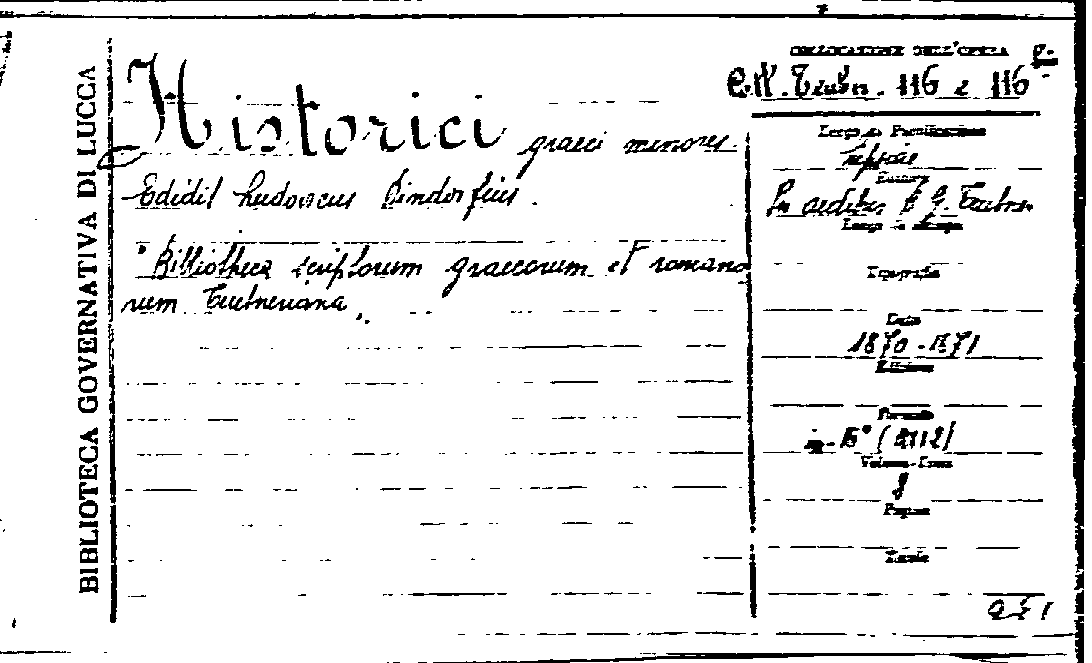 BIBLIOTECA GOVERNATIVA DI LUCCA
Historici graeci minores
Edidit Ludovicus Dindorfius.
"Bibliotheca scriptorum graecorum et romano
rum Teubneriana"
COLLOCAZIONE DELL'OPERA
116 e 116
Luogo di Pubblicazione
Lipsiae
In aedibus B. G. Teubner
Luogo di stampa
Tipografia
Data
1870-1871
Edizione
Formato
in-16°
Volume-Tomo
Pagine
Tavole